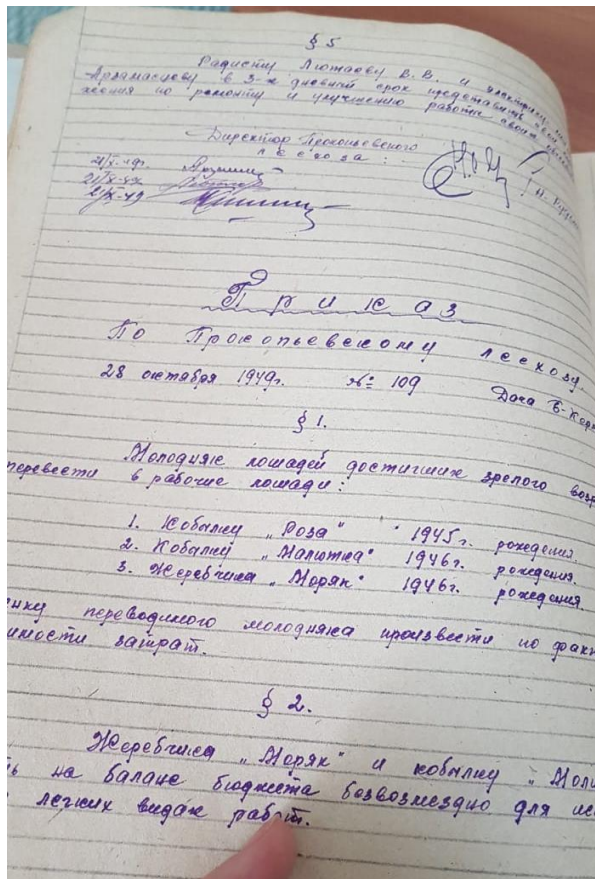 § 5
Радисту Лютаеву В.В. и электрику
Арзамасцову в 3-х дневный срок представить
по ремонту и улучшению работы своих
Директор Прокопьевского
лесхоза:
21/X-49
21/X-49
21/X-49
Приказ
По Прокопьевскому лесхозу.
28 октября 1949г. № 109 Дача
§ 1.
Молодняк лошадей достигших зрелого возр
перевести в рабочие лошади:
1. Кобылку „Роза" 1945г. рождения.
2. Кобылку „Малютка" 1946г. рождения.
3. Жеребчика „Моряк" 1946г. рождения.
енку переводимого молодняка произвести по факт
имости затрат.
§ 2.
Жеребчика „Моряк" и кобылку „Малю
ть на баланс бюджета безвозмездно для ис
легких видах работ.